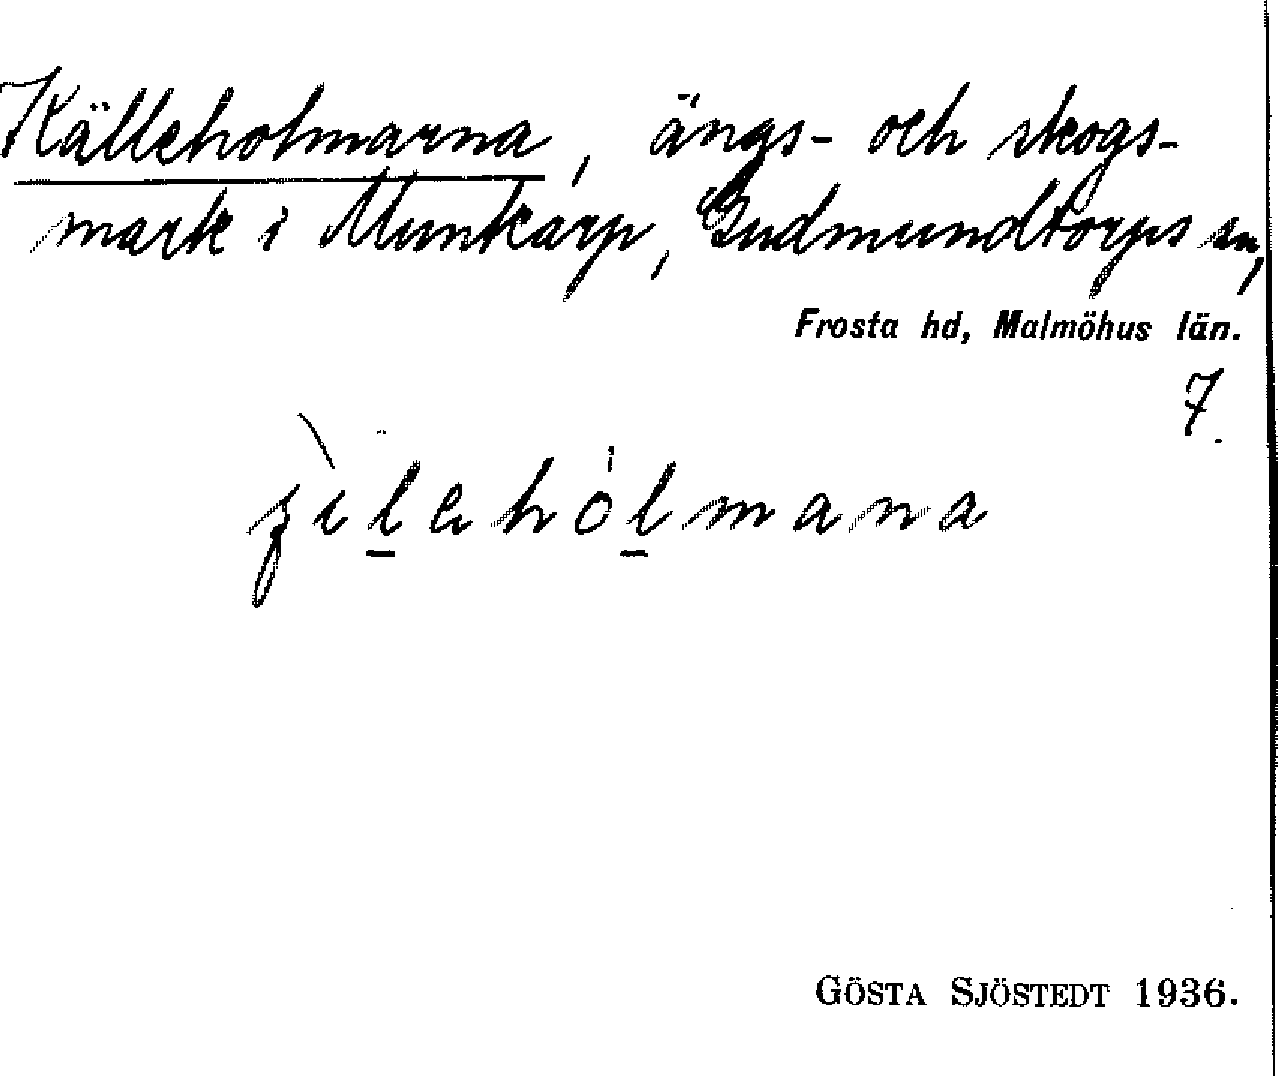 Källeholmarna, ängs- och skogs-
mark i Munkarp, Gudmundtorps sn,
Frosta hd, Malmöhus län.
7.
GÖSTA SJÖSTEDT 1936.